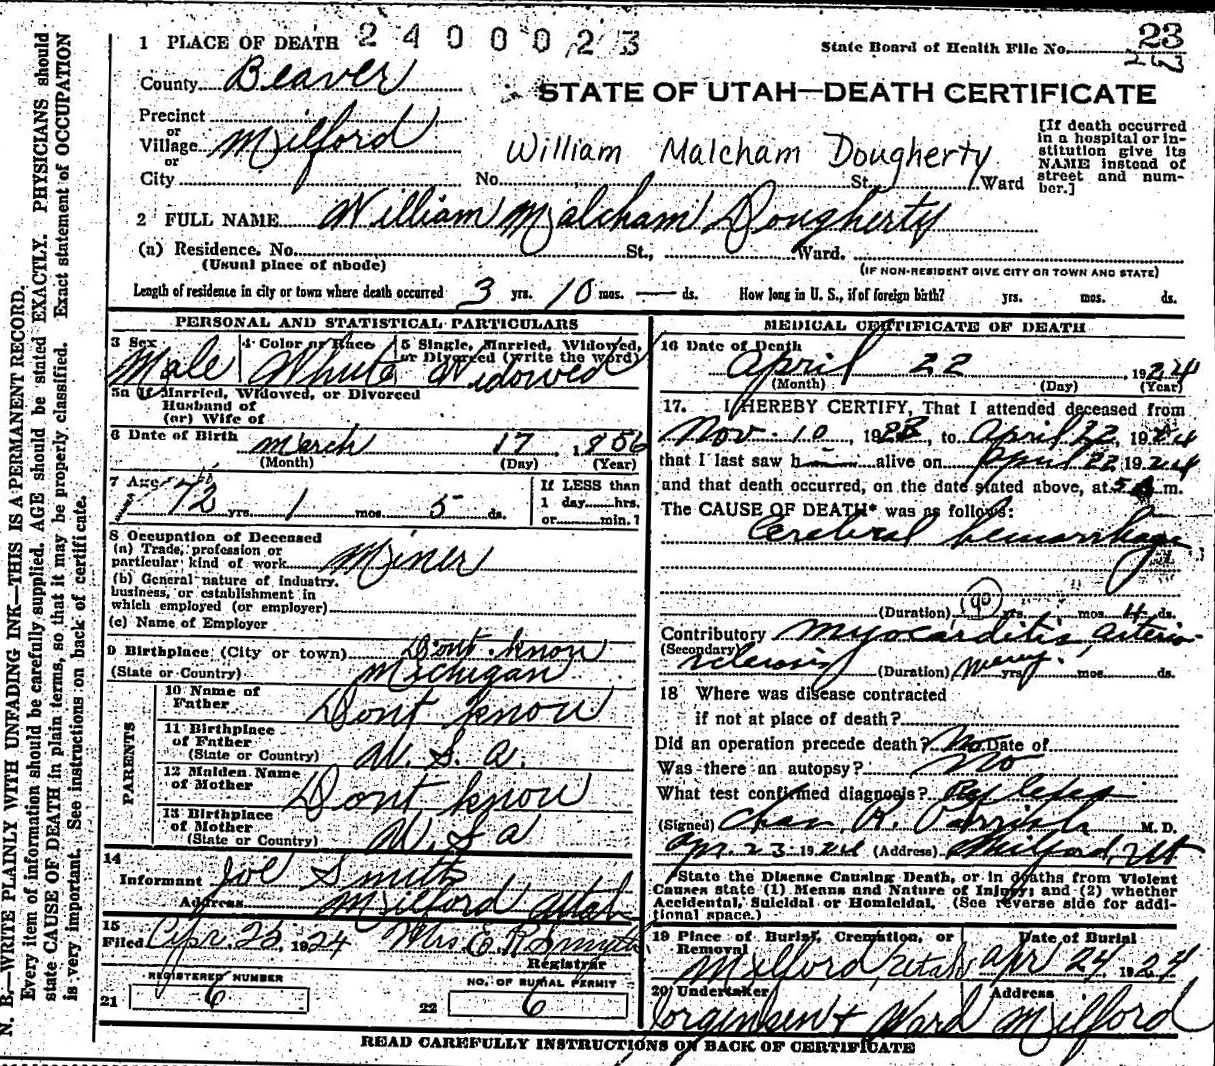 1 PLACE OF DEATH 2400023
State Board of Health File No. 23
County Beaver
STATE OF UTAH—DEATH CERTIFICATE
Precinct
or
Village Milford
or
City
William Malcham Dougherty
No. St. Ward
[If death occurred
in a hospital or in-
stitution give its
NAME instead of
street and num-
ber.]
2 FULL NAME William Malcham Dougherty
(a) Residence. No. St., Ward.
(Usual place of abode)
(IF NON-RESIDENT GIVE CITY OR TOWN AND STATE)
Length of residence in city or town where death occurred 3 yrs. 10 mos. — ds. How long in U. S., if of foreign birth? yrs. mos. ds.
PERSONAL AND STATISTICAL PARTICULARS
3 Sex
Male
4 Color or Race
White
5 Single, Married, Widowed,
or Divorced (write the word)
Widowed
5a If Married, Widowed, or Divorced
Husband of
(or) Wife of
6 Date of Birth March 17, 1856
(Month) (Day) (Year)
7 Age 72 yrs. 1 mos. 5 ds.
If LESS than
1 day hrs.
or min.?
8 Occupation of Deceased
(a) Trade, profession or
particular kind of work Miner
(b) General nature of industry.
business, or establishment in
which employed (or employer)
(c) Name of Employer
9 Birthplace (City or town) Dont know
(State or Country) Michigan
PARENTS
10 Name of
Father Dont know
11 Birthplace
of Father
(State or Country) U. S. a.
12 Maiden Name
of Mother Dont know
13 Birthplace
of Mother
(State or Country) U S a
14
Informant Joe Smith
Address Milford Utah
15
Filed Apr. 23, 1924 Mrs. E. R. Smyth
Registrar
REGISTERED NUMBER
21 6
NO. OF BURIAL PERMIT
22 6
MEDICAL CERTIFICATE OF DEATH
16 Date of Death
April 22 1924
(Month) (Day) (Year)
17. I HEREBY CERTIFY, That I attended deceased from
Nov. 10, 1923, to April 22, 1924
that I last saw h alive on April 22 1924
and that death occurred, on the date stated above, at 5 A m.
The CAUSE OF DEATH* was as follows:
Cerebral hemorrhage
(Duration) yrs. mos. 4 ds.
Contributory myocarditis, arterio-
(Secondary)
sclerosis (Duration) many yrs. mos. ds.
18 Where was disease contracted
if not at place of death?
Did an operation precede death? No Date of
Was there an autopsy? No
What test confirmed diagnosis?
(Signed) Chas R. Parrish M. D.
Apr. 23 1924 (Address) Milford, Ut
State the Disease Causing Death, or in deaths from Violent
Causes state (1) Means and Nature of Injury; and (2) whether
Accidental, Suicidal or Homicidal. (See reverse side for addi-
tional space.)
19 Place of Burial, Cremation, or
Removal
Milford, Utah
Date of Burial
apr 24, 1924
20 Undertaker
Jorgensen & Ward
Address
Milford
READ CAREFULLY INSTRUCTIONS ON BACK OF CERTIFICATE
N. B.—WRITE PLAINLY WITH UNFADING INK—THIS IS A PERMANENT RECORD.
Every item of information should be carefully supplied. AGE should be stated EXACTLY. PHYSICIANS should
state CAUSE OF DEATH in plain terms, so that it may be properly classified. Exact statement of OCCUPATION
is very important. See instructions on back of certificate.